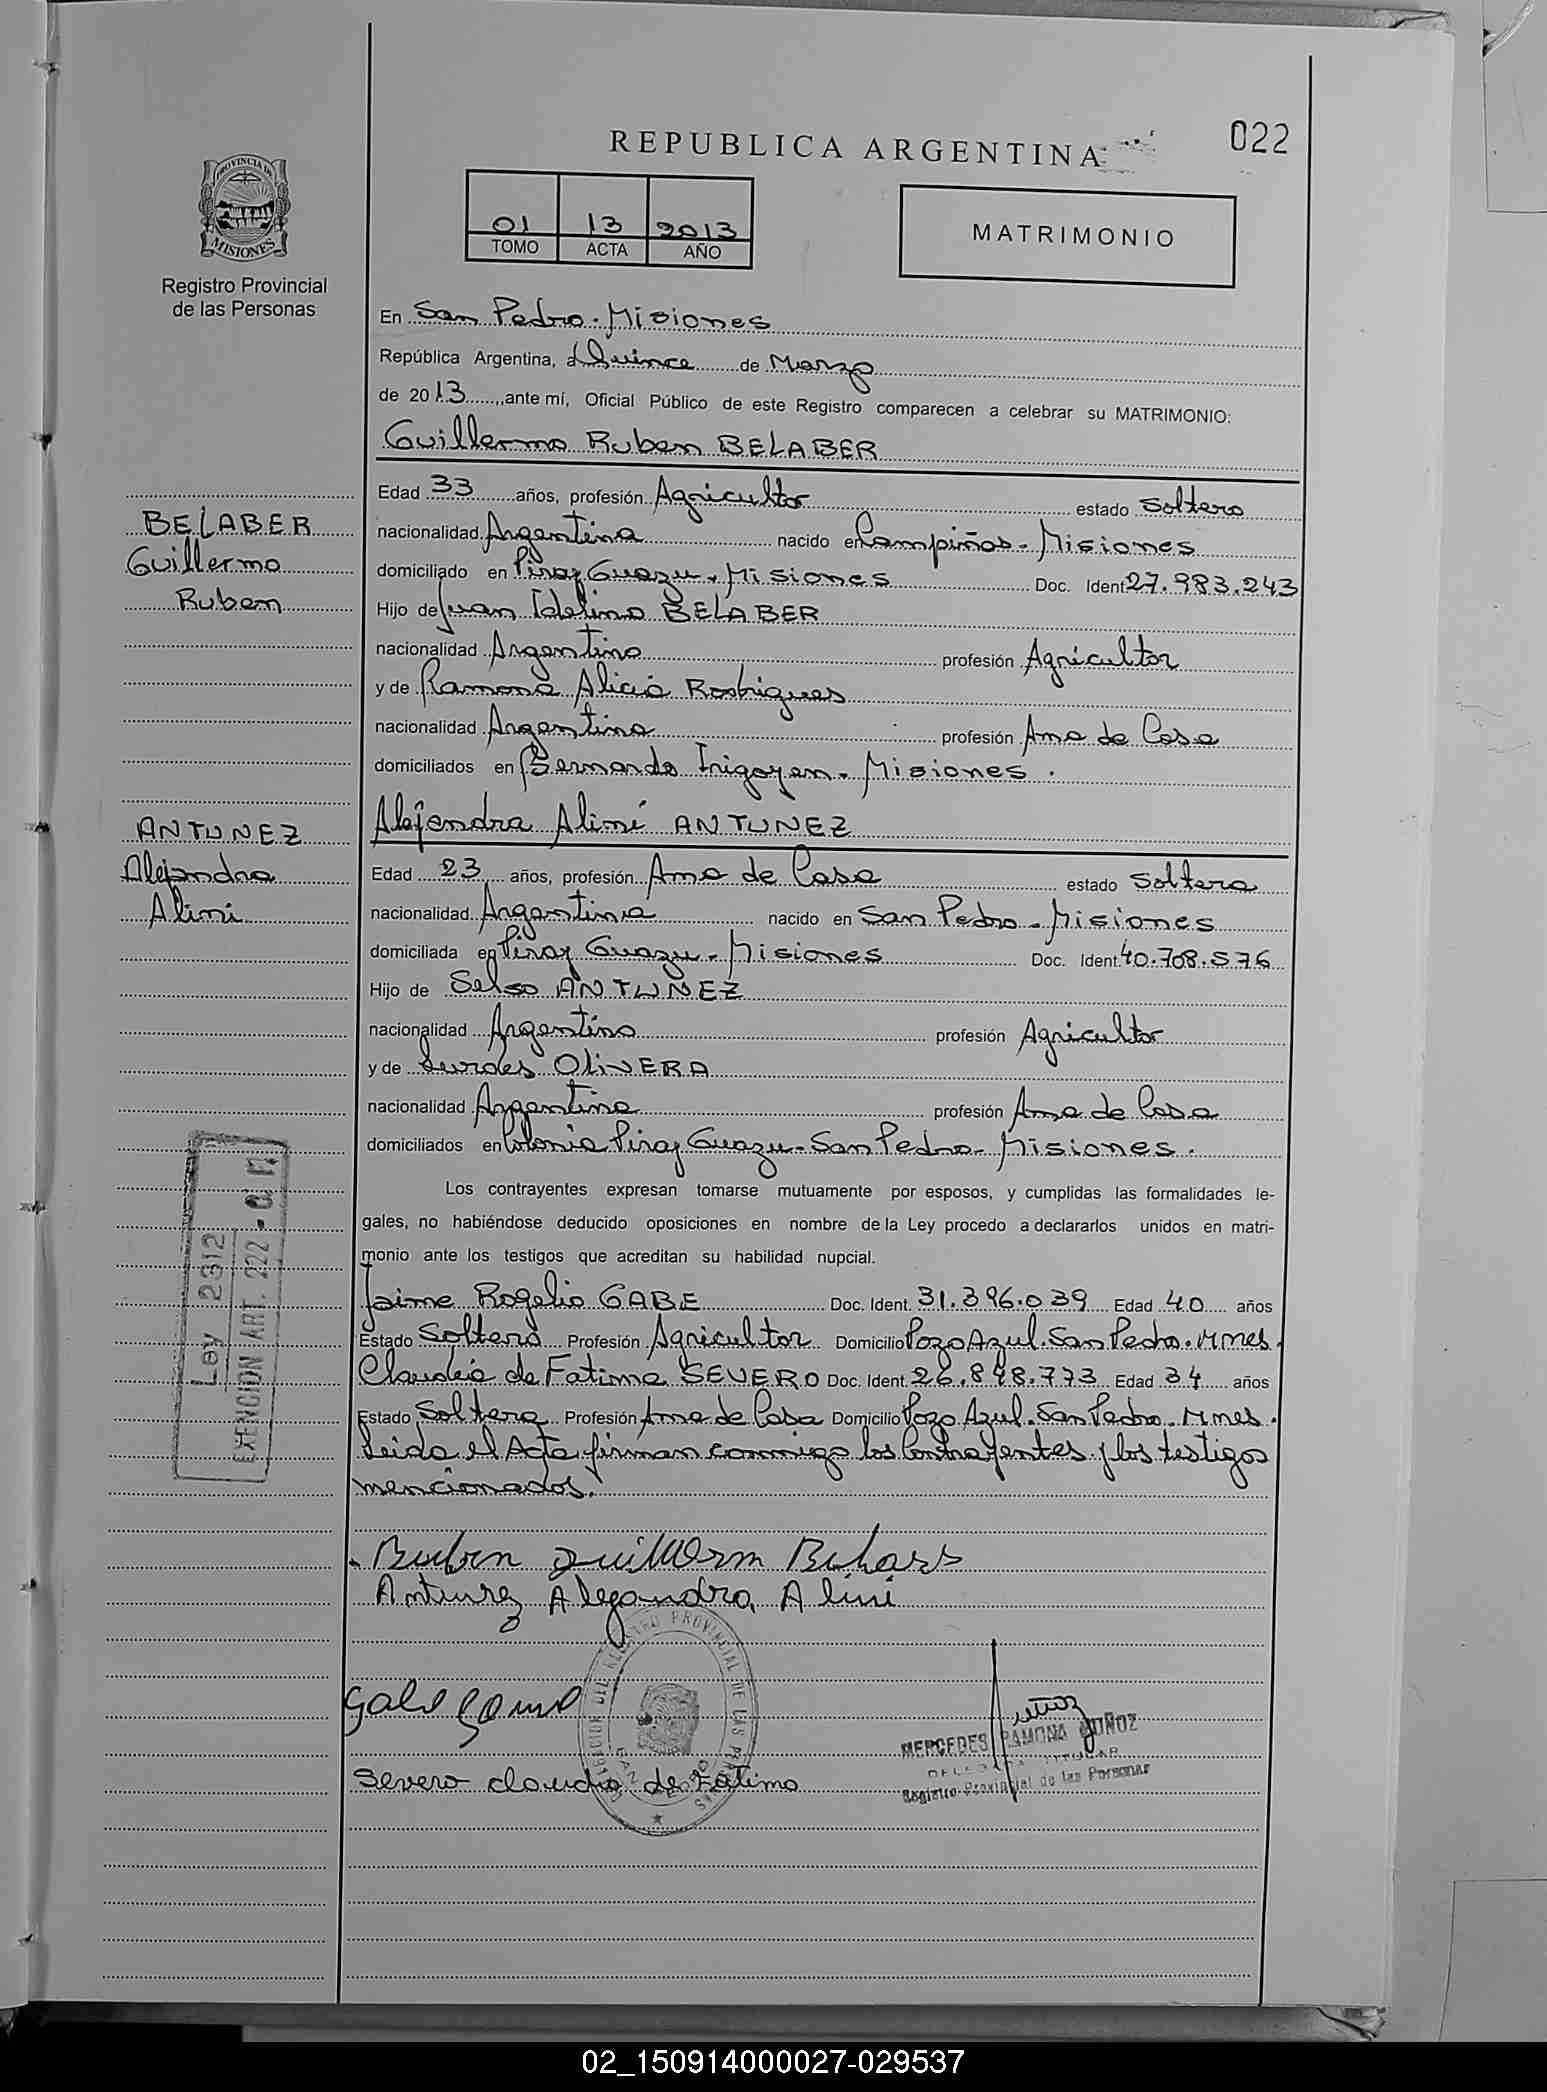 022
REPUBLICA ARGENTINA
PROVINCIA DE
MISIONES
Registro Provincial
de las Personas
01 13 2013
TOMO ACTA AÑO
MATRIMONIO
En San Pedro. Misiones
República Argentina, a Quince de Marzo
de 2013, ante mí, Oficial Público de este Registro comparecen a celebrar su MATRIMONIO:
Guillermo Ruben BELABER
Edad 33 años, profesión Agricultor estado Soltero
BELABER
Guillermo
Ruben
nacionalidad Argentina nacido en Campiñas - Misiones
domiciliado en Piray Guazu - Misiones Doc. Ident. 27.983.243
Hijo de Juan Idelino BELABER
nacionalidad Argentino profesión Agricultor
y de Ramona Alicia Rodrigues
nacionalidad Argentina profesión Ama de Casa
domiciliados en Bernardo Irigoyen - Misiones.
ANTUNEZ
Alejandra
Alini
Alejendra Alini ANTUNEZ
Edad 23 años, profesión Ama de Casa estado Soltera
nacionalidad Argentina nacido en San Pedro - Misiones
domiciliada en Piray Guazu - Misiones Doc. Ident. 40.708.576
Hijo de Selso ANTUNEZ
nacionalidad Argentino profesión Agricultor
y de Lurdes OliVERA
nacionalidad Argentina profesión Ama de Casa
domiciliados en Colonia Piray Guazu - San Pedro - Misiones.
Los contrayentes expresan tomarse mutuamente por esposos, y cumplidas las formalidades le-
gales, no habiéndose deducido oposiciones en nombre de la Ley procedo a declararlos unidos en matri-
monio ante los testigos que acreditan su habilidad nupcial.
Ley 2312
EXENCION ART. 222
Jaime Rogelio GABE Doc. Ident. 31.396.039 Edad 40 años
Estado Soltero Profesión Agricultor Domicilio Pozo Azul. San Pedro. Mnes.
Claudia de Fatima SEVERO Doc. Ident. 26.848.773 Edad 34 años
Estado Soltera Profesión Ama de Casa Domicilio Pozo Azul. San Pedro. Mnes.
Leida el Acta firman conmigo los Contrayentes y los testigos
mencionados.
Ruben Guillerm
Antunez Alejandra Alini
Severo claudia de Fatima
MERCEDES RAMONA MUÑOZ
TITULAR
Registro Provincial de las Personas
DEL REGISTRO PROVINCIAL DE LAS PERSONAS
SAN PEDRO
02_150914000027-029537